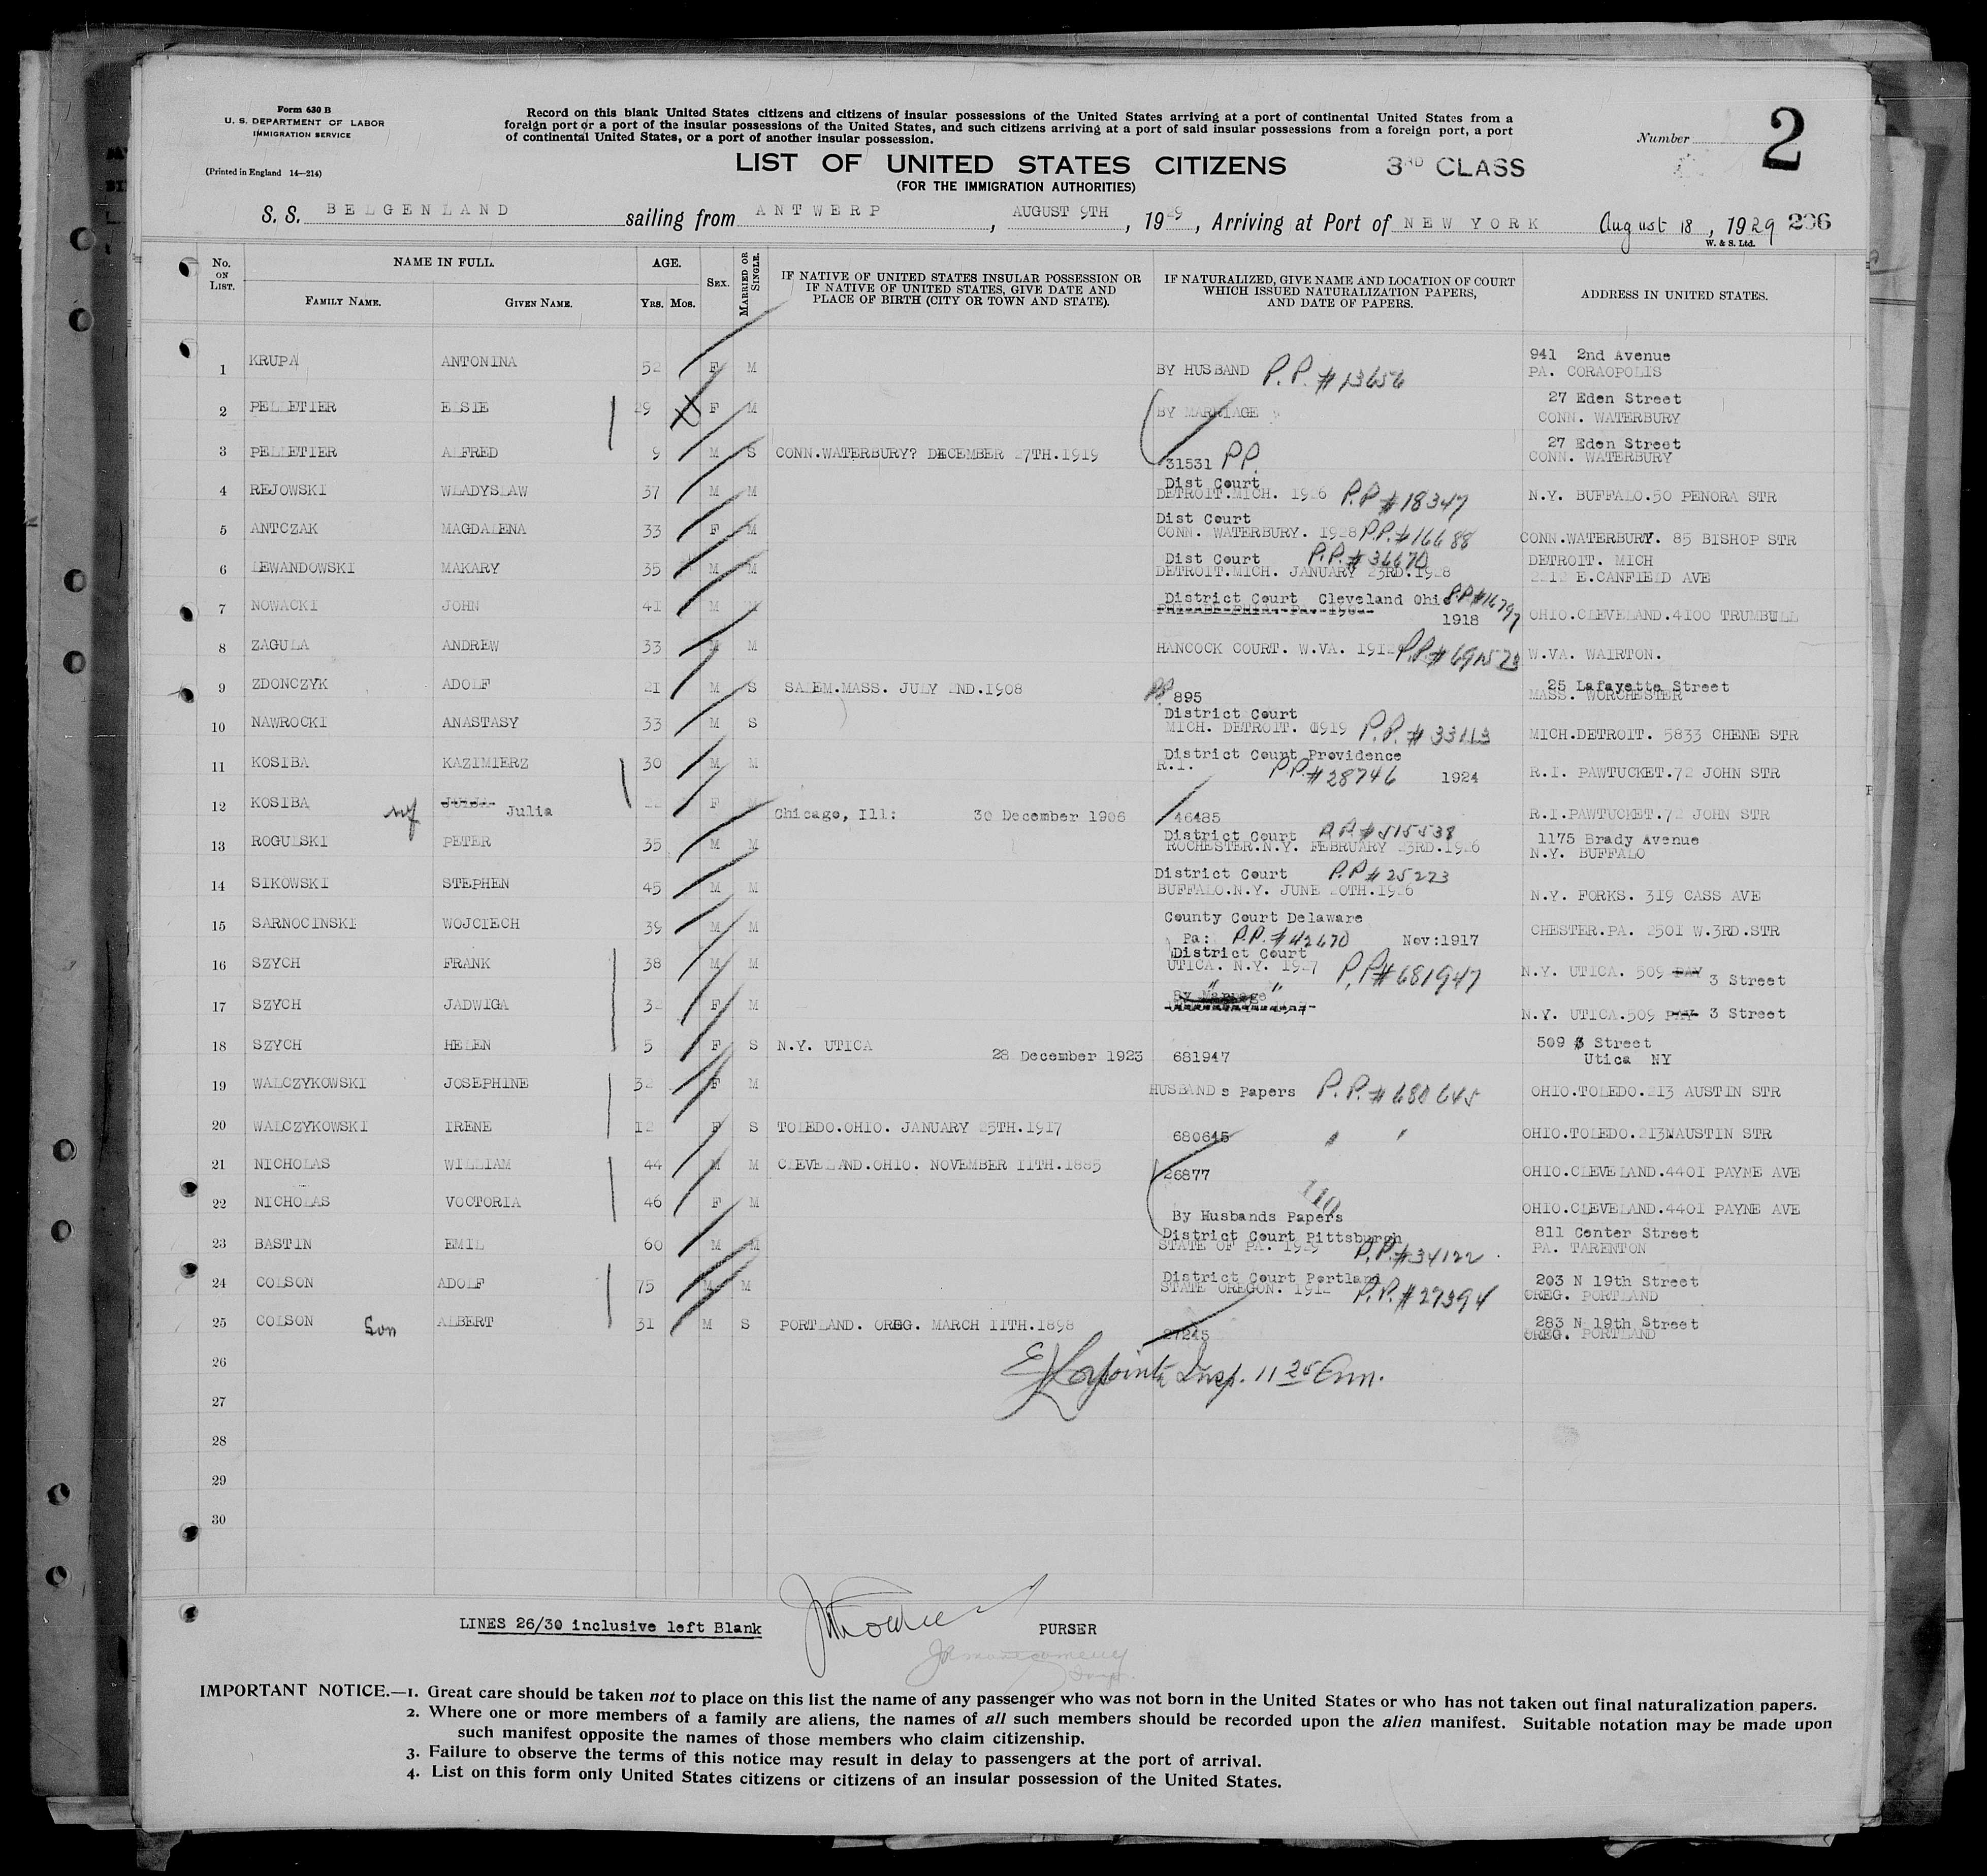 Form 630 B
U. S. DEPARTMENT OF LABOR
IMMIGRATION SERVICE
(Printed in England 14—214)
Record on this blank United States citizens and citizens of insular possessions of the United States arriving at a port of continental United States from a
foreign port or a port of the insular possessions of the United States, and such citizens arriving at a port of said insular possessions from a foreign port, a port
of continental United States, or a port of another insular possession.
Number 2
LIST OF UNITED STATES CITIZENS 3RD CLASS
(FOR THE IMMIGRATION AUTHORITIES)
S. S. BELGENLAND sailing from ANTWERP, AUGUST 9TH, 1929, Arriving at Port of NEW YORK August 18, 1929 206
W. & S. Ltd.
No. ON LIST. NAME IN FULL. AGE. SEX. MARRIED OR SINGLE. IF NATIVE OF UNITED STATES INSULAR POSSESSION OR IF NATIVE OF UNITED STATES, GIVE DATE AND PLACE OF BIRTH (CITY OR TOWN AND STATE). IF NATURALIZED, GIVE NAME AND LOCATION OF COURT WHICH ISSUED NATURALIZATION PAPERS, AND DATE OF PAPERS. ADDRESS IN UNITED STATES.
FAMILY NAME. GIVEN NAME. YRS. MOS.
1 KRUPA ANTONINA 52 F M BY HUSBAND P.P. #13656 941 2nd Avenue PA. CORAOPOLIS
2 PELLETIER ELSIE 29 F M BY MARRIAGE 27 Eden Street CONN. WATERBURY
3 PELLETIER ALFRED 9 M S CONN.WATERBURY? DECEMBER 27TH.1919 31531 PP. 27 Eden Street CONN. WATERBURY
4 REJOWSKI WLADYSLAW 37 M M Dist Court DETROIT.MICH. 1926 P.P #18347 N.Y. BUFFALO.50 PENORA STR
5 ANTCZAK MAGDALENA 33 F M Dist Court CONN. WATERBURY. 1928 P.P.#16688 CONN.WATERBURY. 85 BISHOP STR
6 LEWANDOWSKI MAKARY 35 M M Dist Court P.P.#36670 DETROIT.MICH. JANUARY 23RD.1928 DETROIT. MICH 2212 E.CANFIELD AVE
7 NOWACKI JOHN 41 M M District Court Cleveland Ohio P.P #16797 1918 OHIO.CLEVELAND.4100 TRUMBULL
8 ZAGULA ANDREW 33 M M HANCOCK COURT. W.VA. P.P.#691523 W.VA. WAIRTON.
9 ZDONCZYK ADOLF 21 M S SALEM.MASS. JULY 2ND.1908 PP 895 25 Lafayette Street MASS. WORCHESTER
10 NAWROCKI ANASTASY 33 M S District Court MICH. DETROIT. 1919 P.P. #33113 MICH.DETROIT. 5833 CHENE STR
11 KOSIBA KAZIMIERZ 30 M M District Court Providence R.I. P.P.#28746 1924 R.I. PAWTUCKET.72 JOHN STR
12 KOSIBA wf JULJA Julia 22 F M Chicago, Ill: 30 December 1906 46485 R.I.PAWTUCKET.72 JOHN STR
13 ROGULSKI PETER 35 M M District Court P.P.#515538 ROCHESTER.N.Y. FEBRUARY 23RD.1926 1175 Brady Avenue N.Y. BUFFALO
14 SIKOWSKI STEPHEN 45 M M District Court P.P #25273 BUFFALO.N.Y. JUNE 20TH.1926 N.Y. FORKS. 319 CASS AVE
15 SARNOCINSKI WOJCIECH 39 M M County Court Delaware Pa: P.P.#42670 Nov:1917 CHESTER.PA. 2501 W.3RD.STR
16 SZYCH FRANK 38 M M District Court UTICA. N.Y. 1927 P.P#681947 N.Y. UTICA. 509 PAY 3 Street
17 SZYCH JADWIGA 32 F M " " By Marrage N.Y. UTICA.509 PAY 3 Street
18 SZYCH HELEN 5 F S N.Y. UTICA 28 December 1923 681947 509 3 Street Utica NY
19 WALCZYKOWSKI JOSEPHINE 32 F M HUSBANDs Papers P.P.#680645 OHIO.TOLEDO.213 AUSTIN STR
20 WALCZYKOWSKI IRENE 12 F S TOLEDO.OHIO. JANUARY 25TH.1917 680645 " " OHIO.TOLEDO.213NAUSTIN STR
21 NICHOLAS WILLIAM 44 M M CLEVELAND.OHIO. NOVEMBER 11TH.1885 26877 OHIO.CLEVELAND.4401 PAYNE AVE
22 NICHOLAS VOCTORIA 46 F M 110 By Husbands Papers OHIO.CLEVELAND.4401 PAYNE AVE
23 BASTIN EMIL 60 M M District Court Pittsburgh STATE OF PA. 1929 P.P.#34122 811 Center Street PA. TARENTON
24 COLSON ADOLF 75 M M District Court Portland STATE OREGON. 1912 P.P.#27394 203 N 19th Street OREG. PORTLAND
25 COLSON Son ALBERT 31 M S PORTLAND. OREG. MARCH 11TH.1898 27245 283 N 19th Street OREG. PORTLAND
26
Lapointe Insp. 11 25
27
28
29
30
LINES 26/30 inclusive left Blank PURSER
IMPORTANT NOTICE.—1. Great care should be taken not to place on this list the name of any passenger who was not born in the United States or who has not taken out final naturalization papers.
2. Where one or more members of a family are aliens, the names of all such members should be recorded upon the alien manifest. Suitable notation may be made upon
such manifest opposite the names of those members who claim citizenship.
3. Failure to observe the terms of this notice may result in delay to passengers at the port of arrival.
4. List on this form only United States citizens or citizens of an insular possession of the United States.